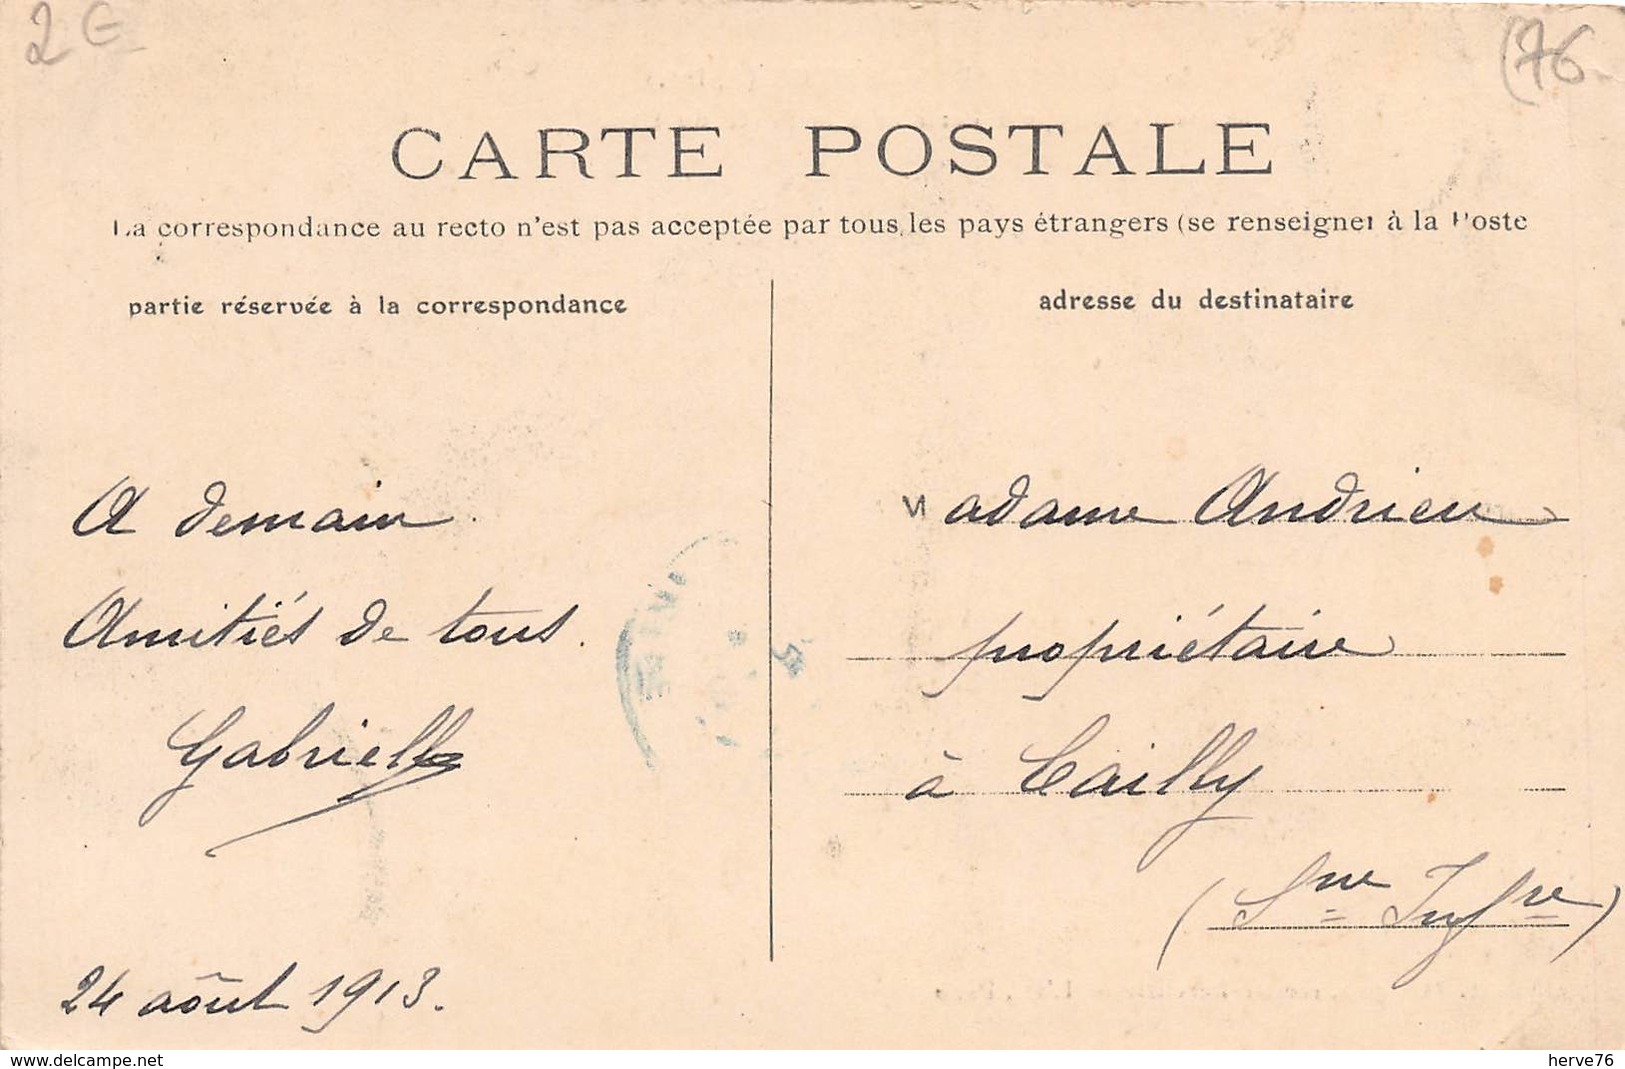 2 €
(76
CARTE POSTALE
La correspondance au recto n'est pas acceptée par tous les pays étrangers (se renseigner à la Poste
partie réservée à la correspondance
adresse du destinataire
A demain.
Amitiés de tous.
Gabrielle
24 août 1913.
Madame Andrieu
propriétaire
à Cailly
(Sne Infre)
www.delcampe.net
herve76